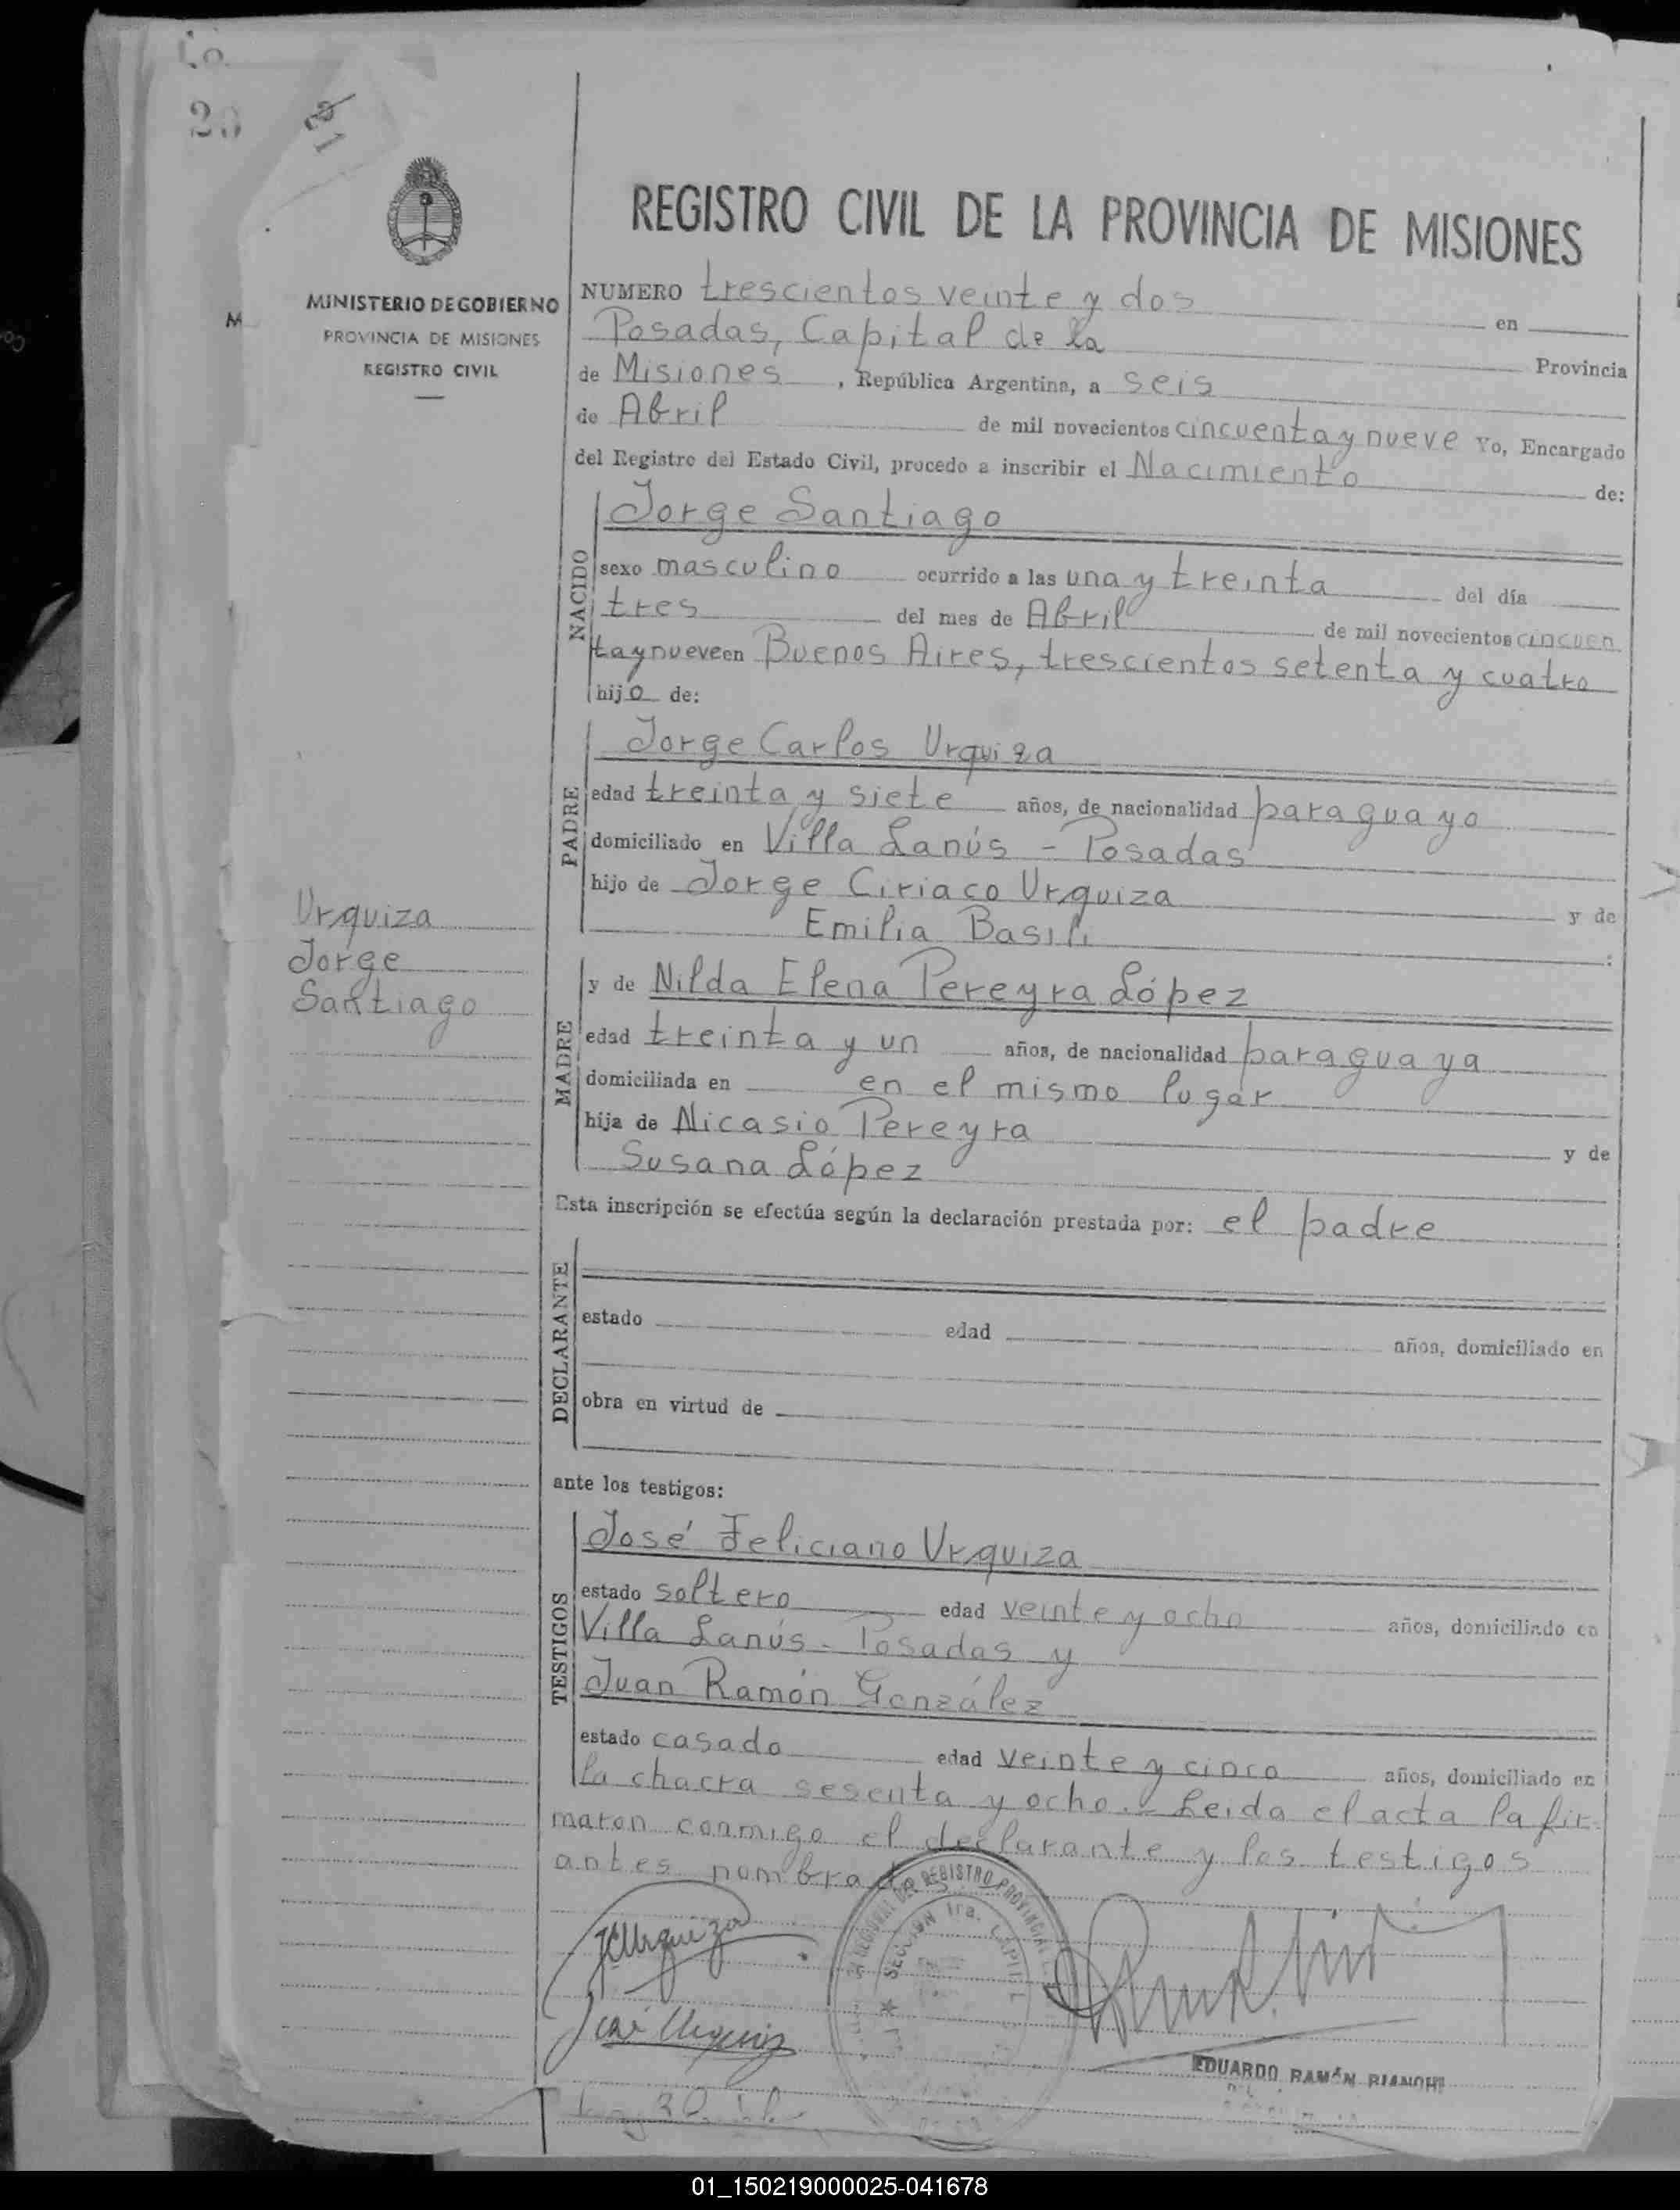 20
21
MINISTERIO DE GOBIERNO
PROVINCIA DE MISIONES
REGISTRO CIVIL
REGISTRO CIVIL DE LA PROVINCIA DE MISIONES
NUMERO trescientos veinte y dos en
Posadas, Capital de la Provincia
de Misiones, República Argentina, a seis
de Abril de mil novecientos cincuenta y nueve Yo, Encargado
del Registro del Estado Civil, procedo a inscribir el Nacimiento de:
NACIDO
Jorge Santiago
sexo masculino ocurrido a las una y treinta del día
tres del mes de Abril de mil novecientos cincuen
ta y nueve en Buenos Aires, trescientos setenta y cuatro
hijo de:
PADRE
Jorge Carlos Urquiza
edad treinta y siete años, de nacionalidad paraguayo
domiciliado en Villa Lanús - Posadas
hijo de Jorge Ciriaco Urquiza y de
Emilia Basili :
Urquiza
Jorge
Santiago
MADRE
y de Nilda Elena Pereyra López
edad treinta y un años, de nacionalidad paraguaya
domiciliada en en el mismo lugar
hija de Nicasio Pereyra y de
Susana López
Esta inscripción se efectúa según la declaración prestada por: el padre
DECLARANTE
estado edad años, domiciliado en
obra en virtud de
ante los testigos:
TESTIGOS
José Feliciano Urquiza
estado soltero edad veinte y ocho años, domiciliado en
Villa Lanús - Posadas y
Juan Ramón González
estado casado edad veinte y cinco años, domiciliado en
la chacra sesenta y ocho.- Leida el acta la fir-
maron conmigo el declarante y los testigos
antes nombrados
REGISTRO PROVINCIAL
SECCION 1ra. CAPITAL
JCUrquiza
José Urquiza
EDUARDO RAMÓN BIANCHI
01_150219000025-041678